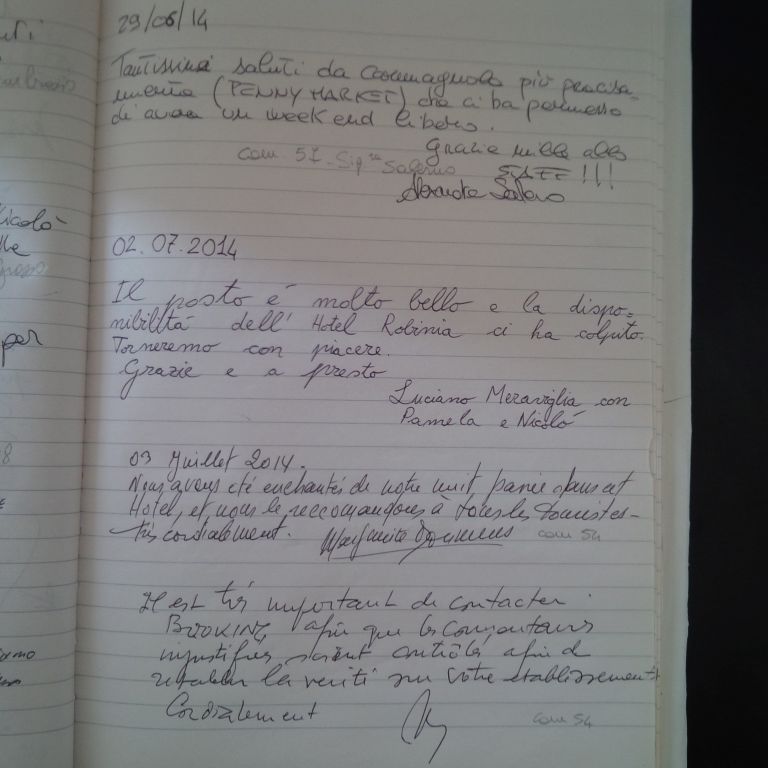 29/06/14
Tantissimi saluti da Carmagnola più precisa-
mente (PENNY MARKET) che ci ha permesso
di avere un week end libero.
Grazie mille allo
STAFF !!!
com. 51 - Sig.ra Salerno
02.07.2014
Il posto é molto bello e la dispo=
nibilità dell' Hotel Robinia ci ha colpito.
Torneremo con piacere.
Grazie e a presto
Luciano Meraviglia con
Pamela e Nicolò
03 Juillet 2014.
Nous avons été enchantés de notre nuit, passée dans cet
Hotel, et nous le reccomandons à tous les touristes-
très cordialement. Marguerite
com 54
Il est très important de contacter
BOOKING, afin que les commentaires
injustifiés soient contrôlés afin de
rétablir la verité sur votre etablissement
Cordialement
com 54
Nicolò
per